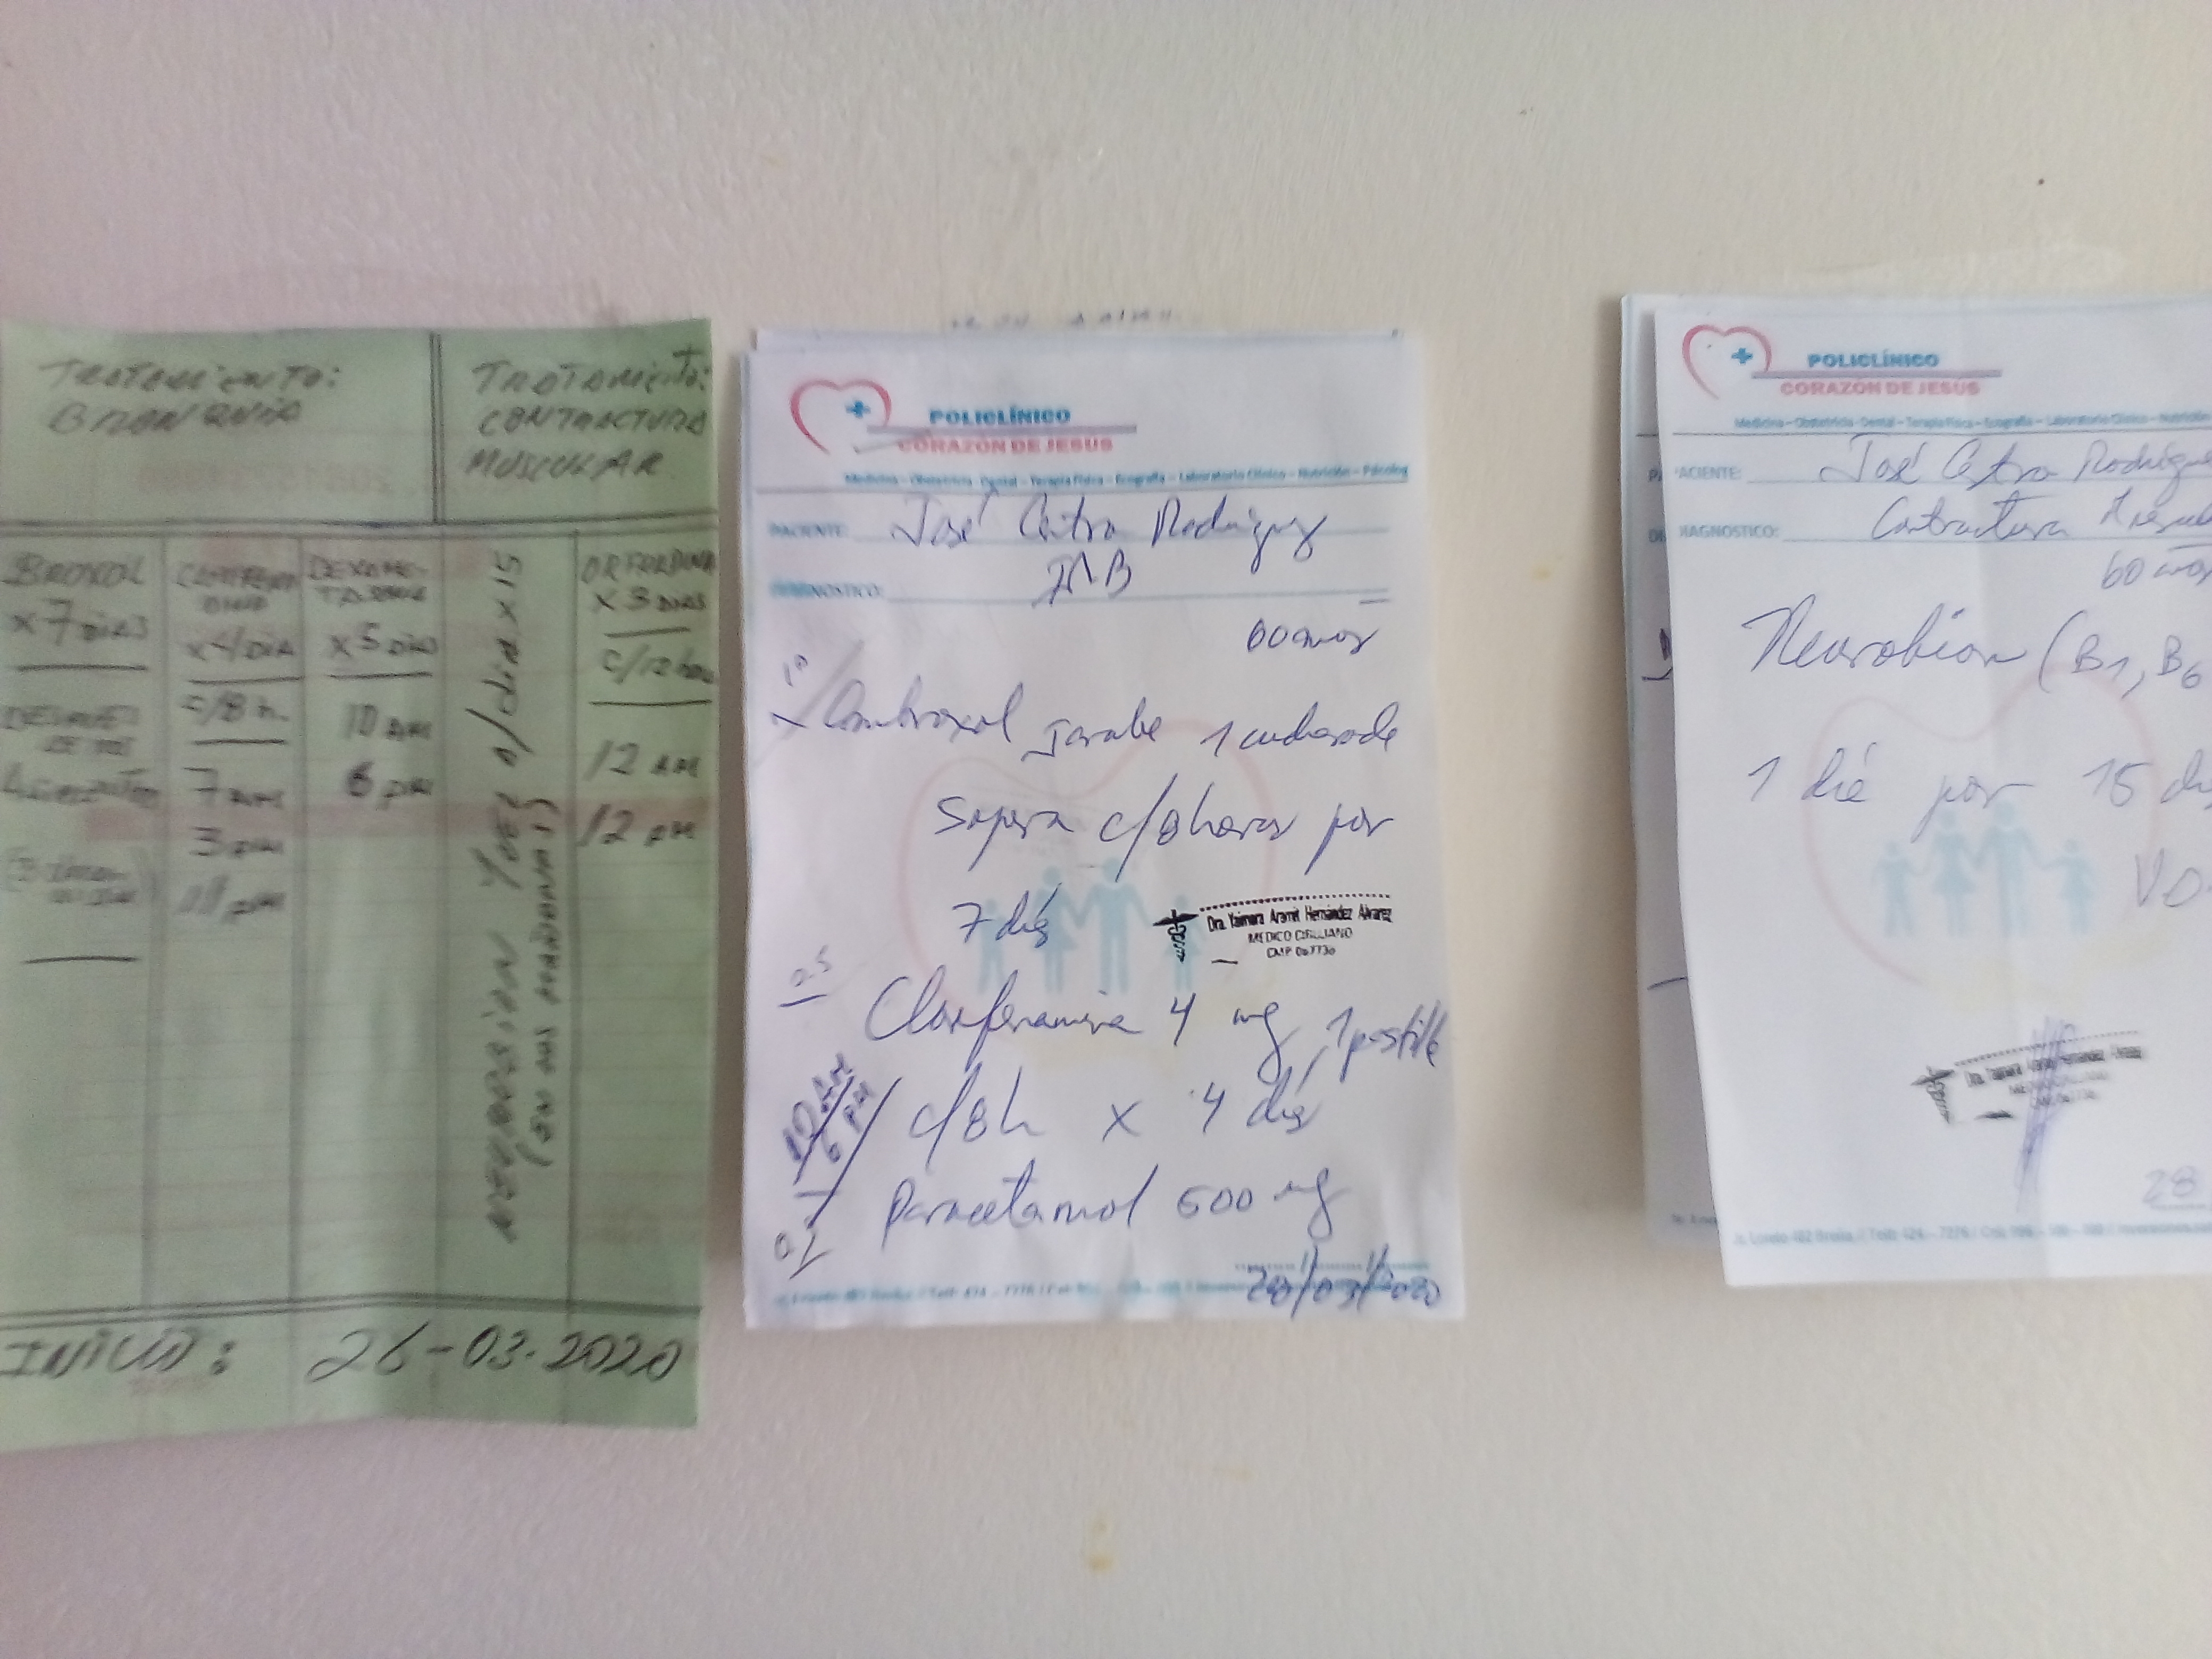 TRATAMIENTO:
BRONQUIA
TRATAMIENTO:
CONTRACTURA
MUSCULAR
BROXOL
x 7 DIAS
DESPUES
DE MIS
ALIMENTOS
x 4/DIA
c/8 h.
7 AM
3 PM
11 PM
DEXAME-
TASONA
x 5 DIAS
10 AM
6 PM
NEUROBION 1 VEZ a/dia x 15
(EN LAS MAÑANAS)
x 3 DIAS
c/12 hor
12 AM
12 PM
INICIO: 26-03-2020
POLICLÍNICO
CORAZÓN DE JESUS
Medicina - Obstetricia - Dental - Terapia Física - Ecografía - Laboratorio Clínico - Nutrición - Psicolog
PACIENTE: José Castro Rodríguez
DIAGNOSTICO:
60 años
Ambroxol Jarabe 1 cucharada
Sopera c/8horas por
7 días
Dra. Yaimara Aramit Hernández Alvarez
MEDICO CIRUJANO
Clorfenamina 4 mg, 1 pastilla
10 AM
6 PM
c/8h x 4 días
Paracetamol 500 mg
/03/2020
POLICLÍNICO
CORAZÓN DE JESUS
Medicina - Obstetricia - Dental - Terapia Física - Ecografía - Laboratorio Clínico - Nutrición
ACIENTE: José Castro Rodrigue
DIAGNOSTICO: Contractura
60 años
Neurobion (B1, B6
1 día por 15 dí
VO.
28